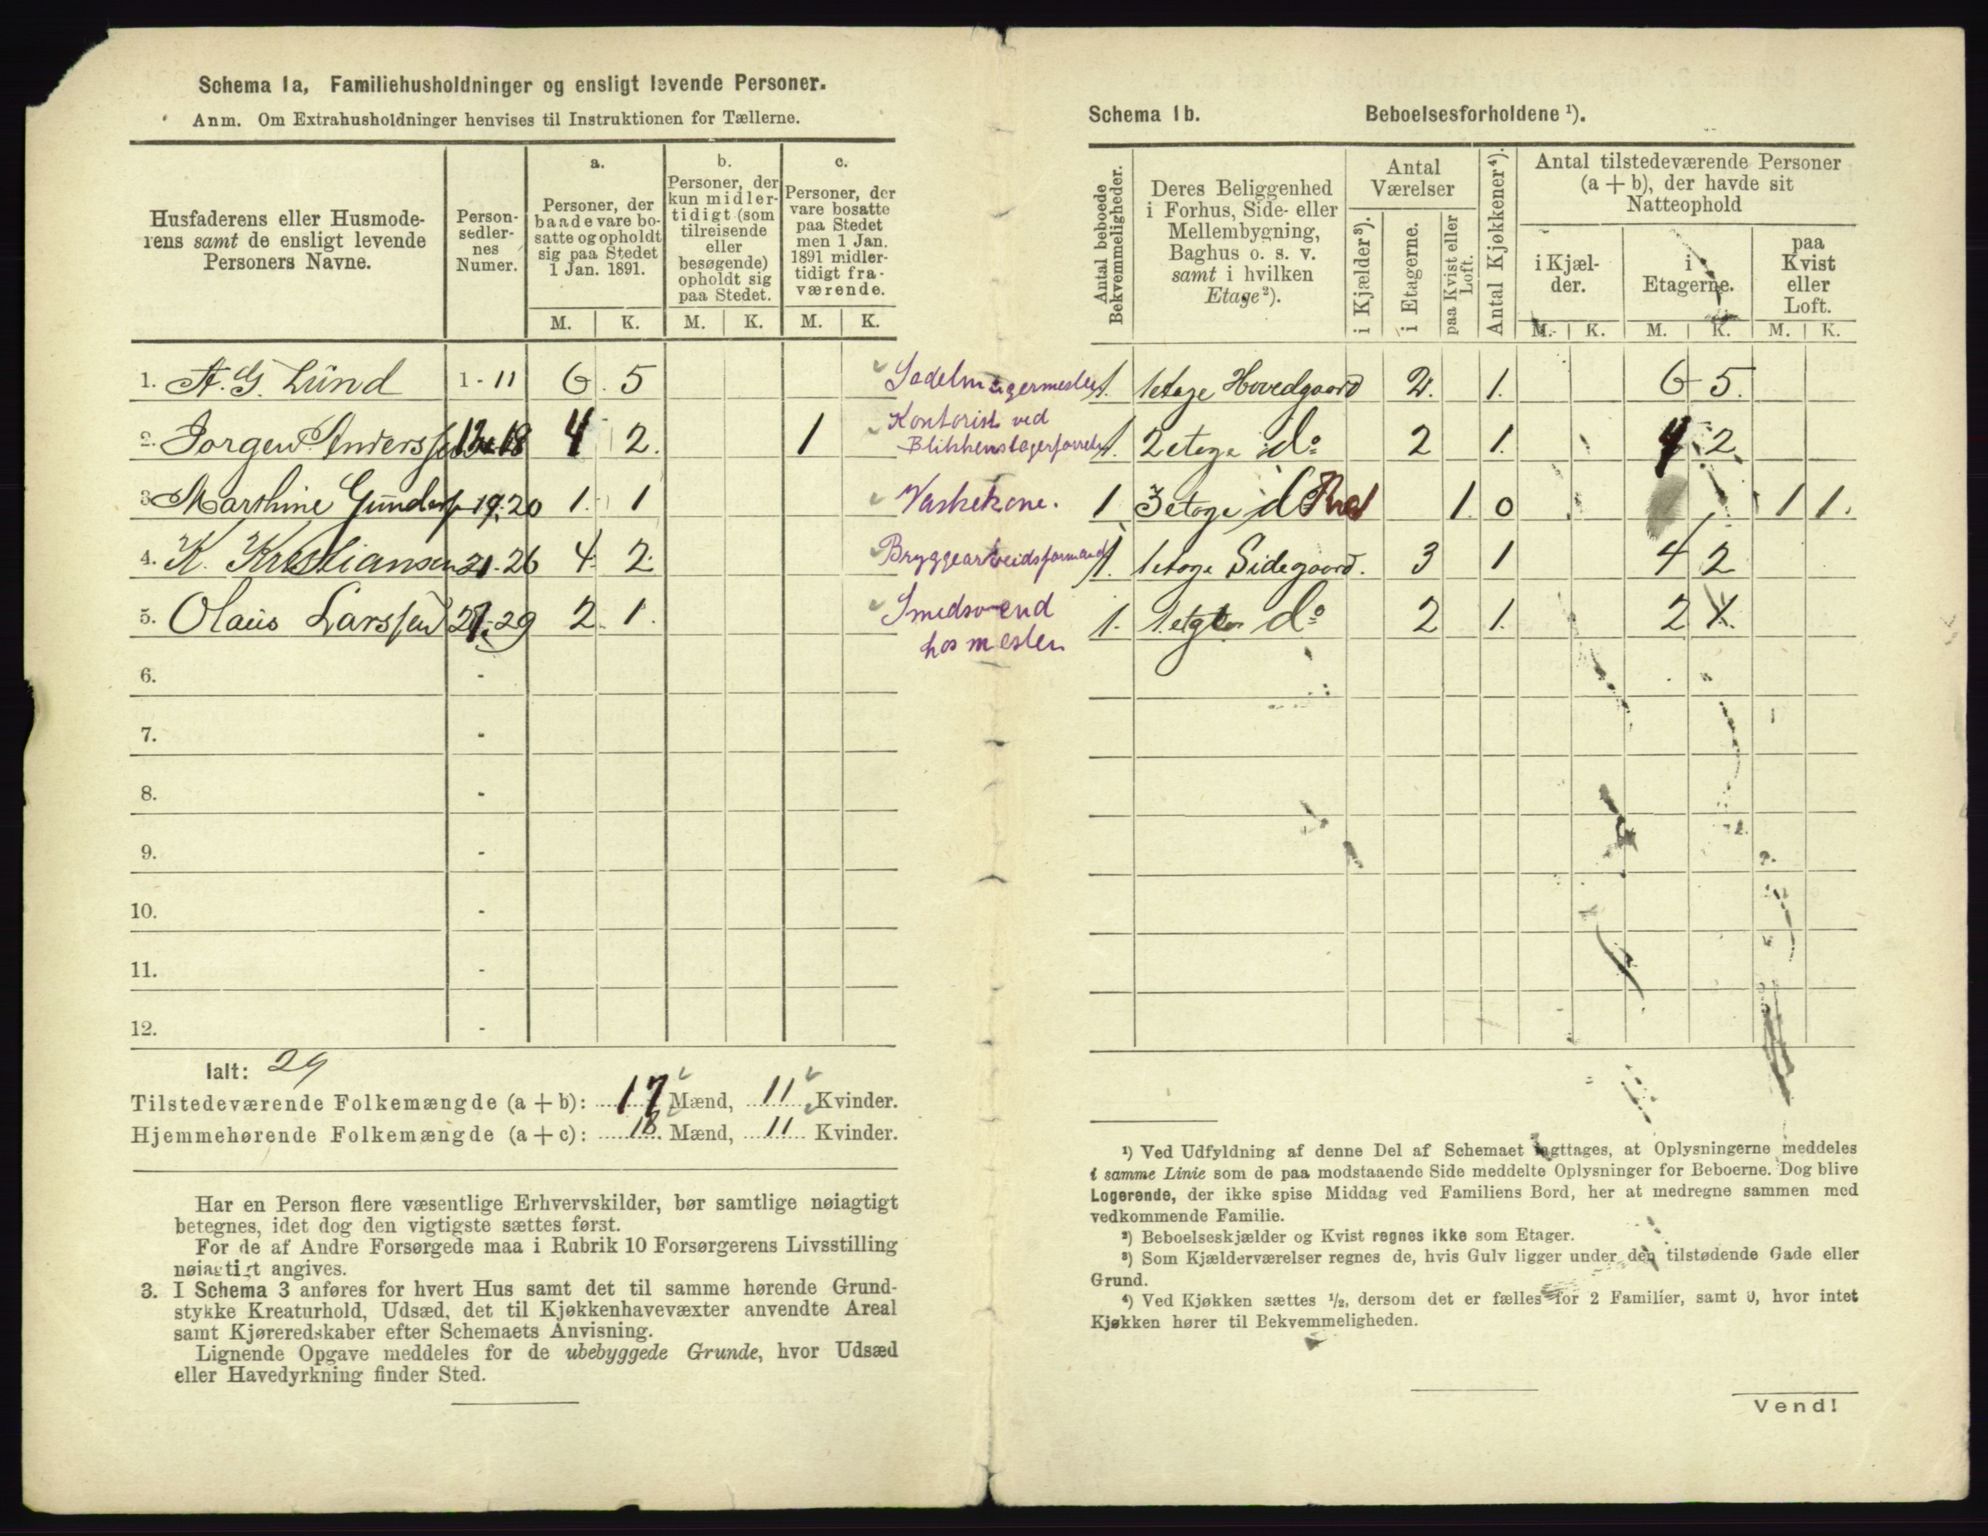 Schema 1a, Familiehusholdninger og ensligt levende Personer.
Anm. Om Extrahusholdninger henvises til Instruktionen for Tællerne.
Husfaderens eller Husmoderens samt de ensligt levende Personers Navne.
Personsedlernes Numer.
a.
Personer, der baade vare bosatte og opholdt sig paa Stedet 1 Jan. 1891.
b.
Personer, der kun midlertidigt (som tilreisende eller besøgende) opholdt sig paa Stedet.
c.
Personer, der vare bosatte paa Stedet men 1 Jan. 1891 midlertidigt fraværende.
M. K. M. K. M. K.
1. A. G. Lund 1-11 6. 5 Sadelmagermester
2. Jorgen Anderssen 12-18 4 2. 1 Kontorist ved
3 Marthine Gunders 19-20 1. 1 Vaskekone.
4. K. Kristiansen 21-26 4. 2. Bryggearbeidsformand
5. Olaus Larssen 27-29 2. 1. Smedsvend
hos mester
6. -
7. -
8. -
9. -
10. -
11. -
12. -
Ialt: 29
Tilstedeværende Folkemængde (a + b): 17 Mænd, 11 Kvinder.
Hjemmehørende Folkemængde (a + c): 18 Mænd, 11 Kvinder.
Har en Person flere væsentlige Erhvervskilder, bør samtlige nøiagtigt
betegnes, idet dog den vigtigste sættes først.
For de af Andre Forsørgede maa i Rubrik 10 Forsørgerens Livsstilling
nøiagtigt angives.
3. I Schema 3 anføres for hvert Hus samt det til samme hørende Grund-
stykke Kreaturhold, Udsæd, det til Kjøkkenhavevæxter anvendte Areal
samt Kjøreredskaber efter Schemaets Anvisning.
Lignende Opgave meddeles for de ubebyggede Grunde, hvor Udsæd
eller Havedyrkning finder Sted.
Schema 1b. Beboelsesforholdene ¹).
Antal beboede Bekvemmeligheder.
Deres Beliggenhed i Forhus, Side- eller Mellembygning, Baghus o. s. v. samt i hvilken Etage²).
Antal Værelser
i Kjælder³).
i Etagerne.
paa Kvist eller Loft.
Antal Kjøkkener⁴).
Antal tilstedeværende Personer (a + b), der havde sit Natteophold
i Kjælder.
i Etagerne.
paa Kvist eller Loft.
M. K. M. K. M. K.
1. 1etage Hovedgaard 2. 1. 6 5.
1. 2etage do 2 1. 4 2
1 3etage do 1. 0 1 1.
1. 1etage Sidegaard. 3 1 4 2
1. 1. do 2 1. 2 1.
¹) Ved Udfyldning af denne Del af Schemaet iagttages, at Oplysningerne meddeles
i samme Linie som de paa modstaaende Side meddelte Oplysninger for Beboerne. Dog blive
Logerende, der ikke spise Middag ved Familiens Bord, her at medregne sammen med
vedkommende Familie.
²) Beboelseskjælder og Kvist regnes ikke som Etager.
³) Som Kjælderværelser regnes de, hvis Gulv ligger under den tilstødende Gade eller
Grund.
⁴) Ved Kjøkken sættes ½, dersom det er fælles for 2 Familier, samt 0, hvor intet
Kjøkken hører til Bekvemmeligheden.
Vend!